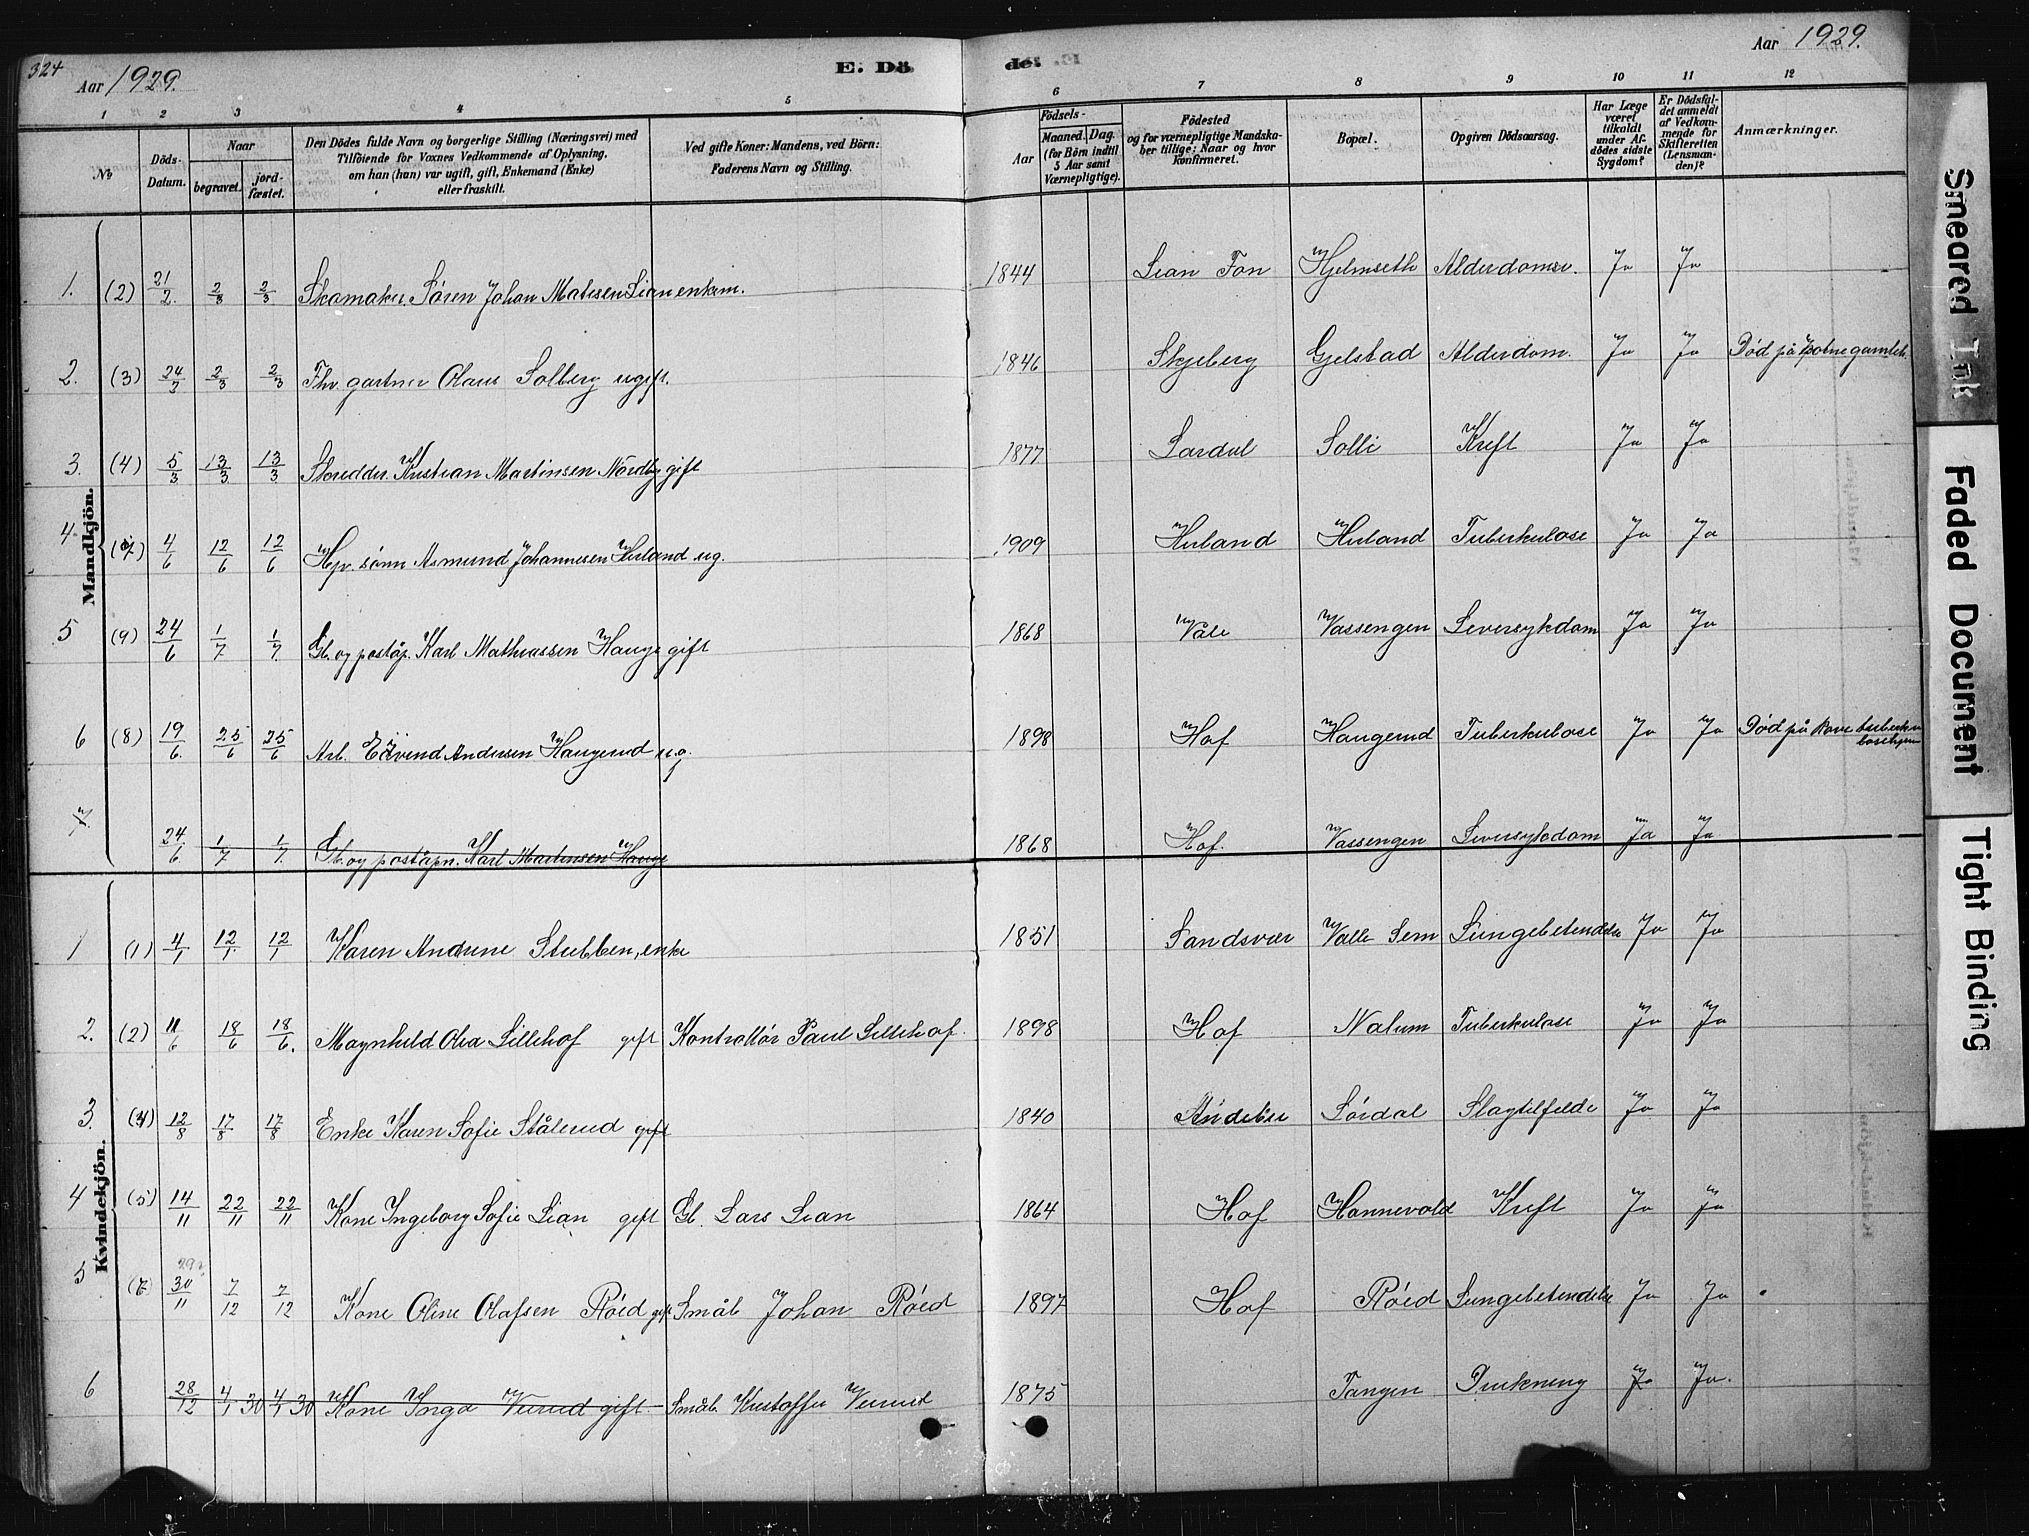 324
Aar 1929.
E. Dö
de. E
Aar 1929.
1 2 3 4 5 6 7 8 9 10 11 12
No
Döds-Datum.
Naar
begravet.
jord-fæstet.
Den Dödes fulde Navn og borgerlige Stilling (Næringsvei) med
Tilföiende for Voxnes Vedkommende af Oplysning,
om han (hun) var ugift, gift, Enkemand (Enke)
eller fraskilt.
Ved gifte Koner: Mandens, ved Börn:
Faderens Navn og Stilling.
Födsels-
Aar
Maaned. Dag.
(for Börn indtil
5 Aar samt
Værnepligtige).
Födested
og for værnepligtige Mandska-
ber tillige: Naar og hvor
konfirmeret.
Bopæl.
Opgiven Dödsaarsag.
Har Læge
været
tilkaldt
under Af-
dödes sidste
Sygdom?
Er Dödsfal-
det anmeldt
af Vedkom-
mende for
Skifteretten
(Lensman-
den)?
Anmærkninger.
Mandkjön.
1. (2) 21/2 2/3 2/3 Skomaker Søren Johan Matisen Lian enkem. 1844 Lian Fon Hjelmseth Alderdomsv. Ja Ja
2. (3) 24/2 2/3 2/3 Fhv. gartner Olaus Solberg ugift. 1846 Skjeberg Gjelstad Alderdom. Ja Ja Död på gamleh.
3. (4) 5/3 13/3 13/3 Skredder. Kristian Martinsen Nordby gift 1877 Lardal Solli Kreft Ja Ja
4. (7) 4/6 12/6 12/6 Hpr. sønn Asmund Johannesen Hvland ug. 1909 Huland Huland Tuberkulose Ja Ja
5 (9) 24/6 1/7 1/7. Gb. og poståp. Karl Mathiassen Hauge gift 1868 Våle Vassengen Leversykdom Ja Ja
6 (8) 19/6. 25/6 25/6 Arb. Eivind Andersen Haugerud ug. 1898 Hof Haugerud Tuberkulose Ja Ja Död på tuberku
losehjem
7. 24/6 1/7 1/7. Gb. og poståpn. Karl Martinsen Hauge 1868 Hof. Vassengen Leversykdom Ja Ja
Kvindekjön.
1 (1) 4/1 12/1 12/1 Karen Andrine Stubben, enke 1851 Sandsvær Valle Sem Lungebetendelse Ja Ja
2. (2) 11/6 18/6 18/6. Maynhild Olea Lillehof gift Kontrollør Paul Lillehof. 1898 Hof Nalum Tuberkulose Ja Ja
3. (4) 12/8 17/8 17/8 Enke Karen Sofie Stålerud gift 1840 Andebu Sørdal Slagtilfelde Ja Ja
4 (5) 14/11 22/11 22/11 Kone Ingeborg Sofie Lian gift Gb. Lars Lian 1864 Hof Hannevold Kreft Ja Ja
5 30/11 7/12 7/12 Kone Oline Olafsen Røed gift Småb. Johan Røed 1897 Hof Røed Lungebetendelse Ja Ja
6 28/12 4/1 30 4/1 30 Kone Inga Verud gift. Småb. Kristoffer Verud 1875 Tangen Drukning Ja Ja.
Smeared Ink
Faded Document
Tight Binding